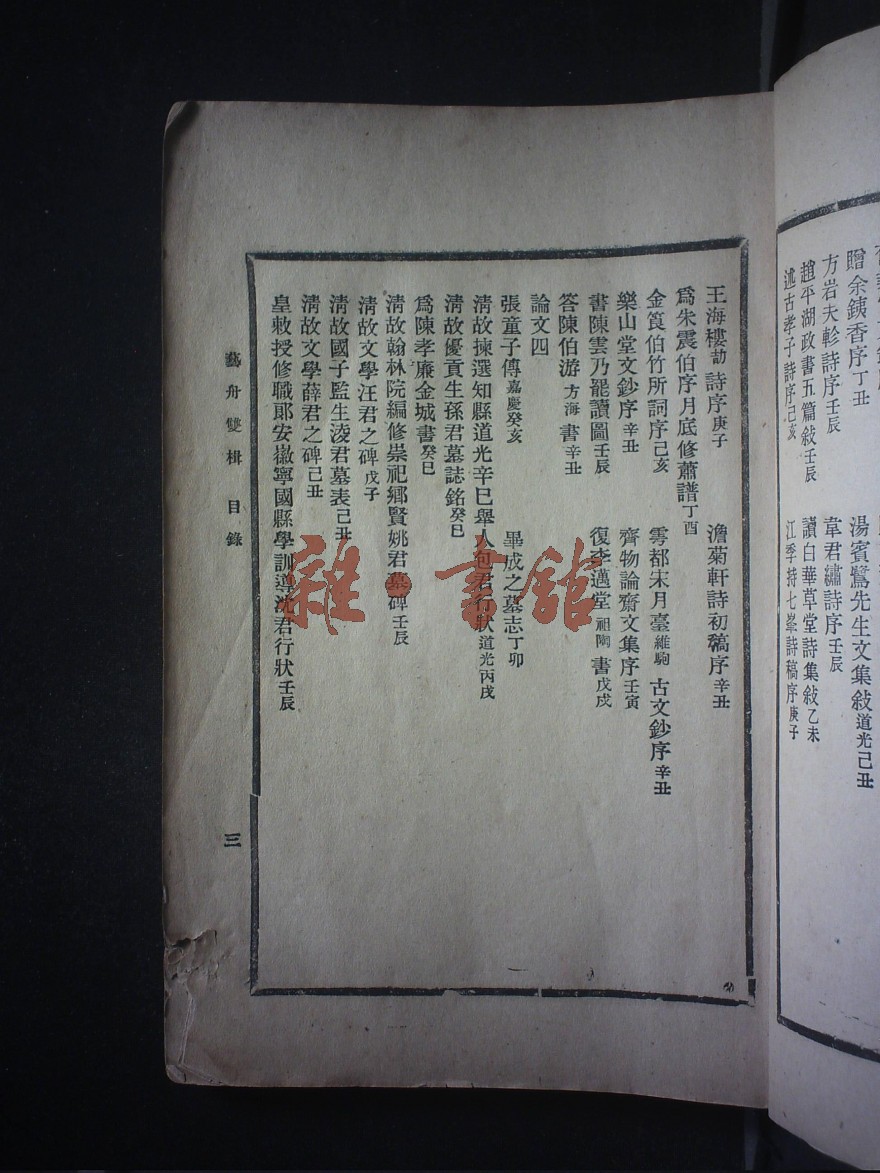 贈余銕香序丁丑
湯賓鷺先生文集敍道光己丑
方岩夫軫詩序壬辰
韋君繡詩序壬辰
趙平湖政書五篇敍壬辰
讀白華草堂詩集敍乙未
述古孝子詩序己亥
江季持七峯詩稿序庚子
王海樓劼詩序庚子
澹菊軒詩初稿序辛丑
爲朱震伯序月底修蕭譜丁酉
金筤伯竹所詞序己亥
雩都宋月臺維駒古文鈔序辛丑
樂山堂文鈔序辛丑
齊物論齋文集序壬寅
書陳雲乃罷讀圖壬辰
復李邁堂祖陶書戊戌
答陳伯游方海書辛丑
論文四
張童子傳嘉慶癸亥
畢成之墓志丁卯
清故揀選知縣道光辛巳舉人包君行狀道光丙戌
清故優貢生孫君墓誌銘癸巳
爲陳孝廉金城書癸巳
清故翰林院編修崇祀鄉賢姚君墓碑壬辰
清故文學汪君之碑戊子
清故國子監生淩君墓表己丑
清故文學薛君之碑己丑
皇敕授修職郞安徽寧國縣學訓導沈君行狀壬辰
藝舟雙楫 目錄
三
雜·書館